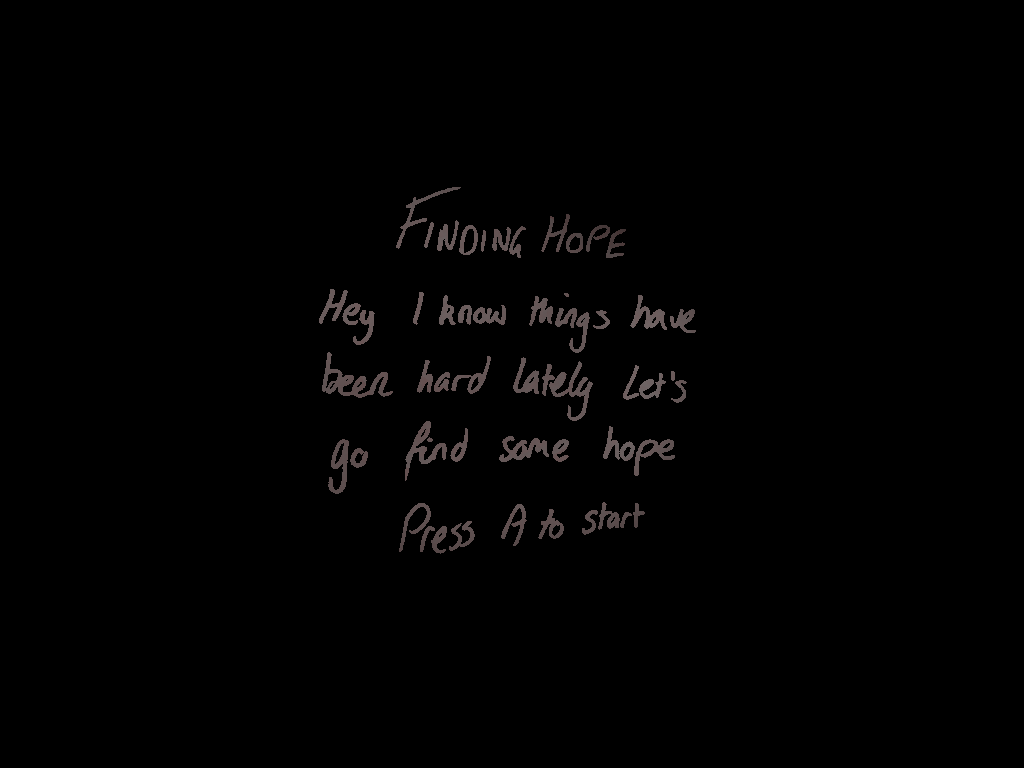 FINDING HOPE
Hey I know things have
been hard lately Let's
go find some hope
Press A to start